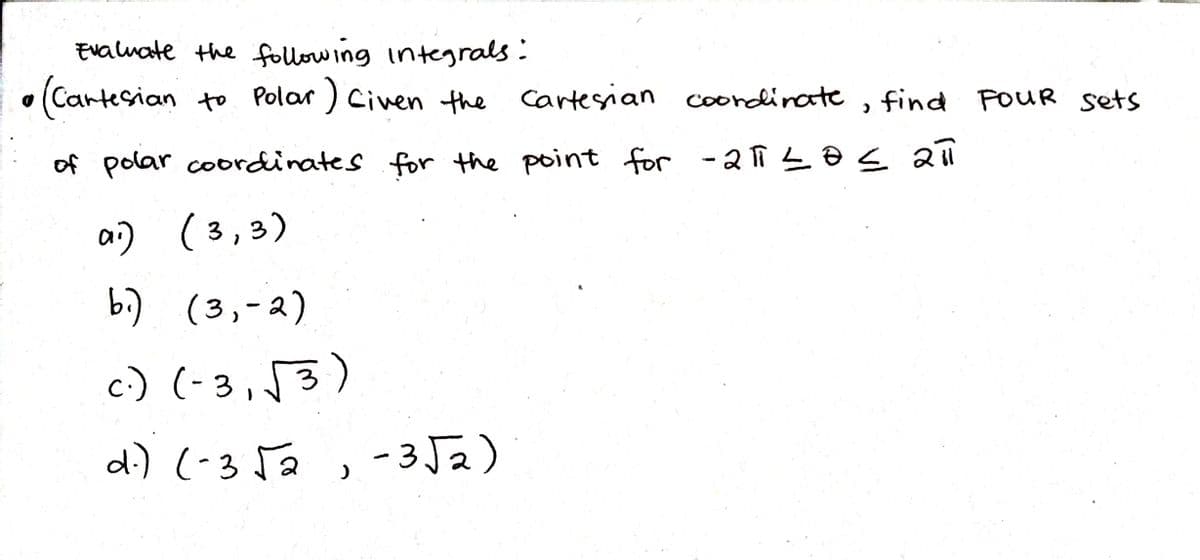 Evaluate the following integrals:
• (Cartesian to Polar) Given the Cartesian coordinate, find FOUR sets
of polar coordinates for the point for -2π ≤ θ ≤ 2π
a.) (3,3)
b.) (3,-2)
c.) (-3,√3)
d.) (-3√2, -3√2)